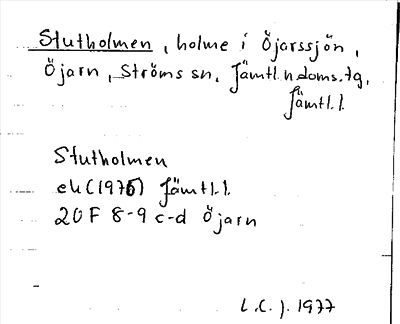 Stutholmen, holme i Öjarssjön,
Öjarn, Ströms sn, Jämtl. n doms. tg,
Jämtl. l.
Stutholmen
ek (1976) Jämtl. l.
20 F 8-9 c-d Öjarn
L.C.J. 1977